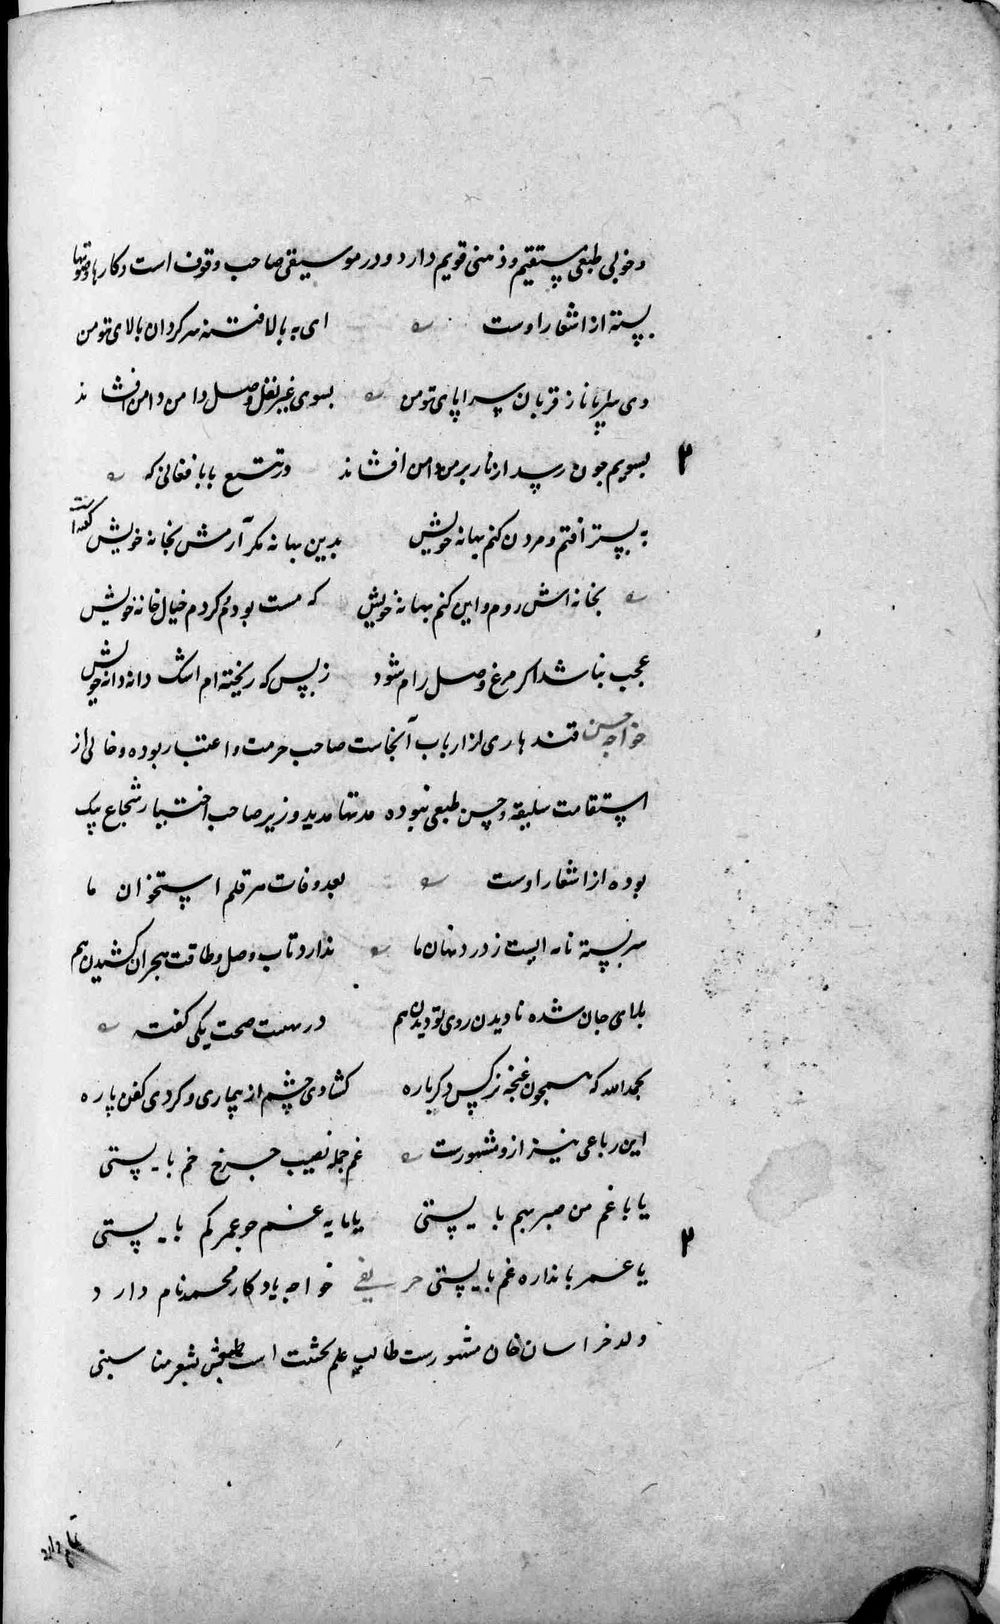 و خوبی طبعی مستقیم و ذهنی قویم دارد و در موسیقی صاحب وقوف است و کارها و صوتها
بسته از اشعار اوست ای به بالا فتنه سرگردان بالای تو من
وی سراپا ناز قربان سراپای تو من بسوی غیر نقل وصل دامن دامن افشاند
۲ بسویم چون رسد از ناز بر من دامن افشاند در تتبع بابا فغانی که
به بستر افتم و مردن کنم بهانه خویش بدین بهانه مگر آرمش بخانه خویش گفته است
بخانه اش روم و این کنم بهانه خویش که مست بودم و کردم خیال خانه خویش
عجب نباشد اگر مرغ وصل رام شود ز بس که ریخته ام اشک دانه دانه خویش
خواجه حسن قندهاری از ارباب آنجاست صاحب حرمت و اعتبار بوده و خالی از
استقامت سلیقه و حسن طبعی نبوده مدتها مدید وزیر صاحب اختیار شجاع بیک
بوده از اشعار اوست بعد وفات هر قلم استخوان ما
سر بسته نامه ایست ز درد نهان ما ندارد تاب وصل و طاقت هجران کشیدن هم
بلای جان شده نادیدن روی تو دیدن هم در صحت یکی گفته
بحمدالله که همچون غنچه نرگس دگرباره گشادی چشم از بیماری و کردی کفن پاره
این رباعی نیز ازو مشهورست غم جمله نصیب چرخ خم بایستی
یا با غم من صبر بهم بایستی یا مایه غم چو عمر کم بایستی
۲ یا عمر باندازه غم بایستی حریفی خواجه یادگار محمد نام دارد
ولد خراسان خان مشهورست طالب علم است طبعش بشعر مناسبتی